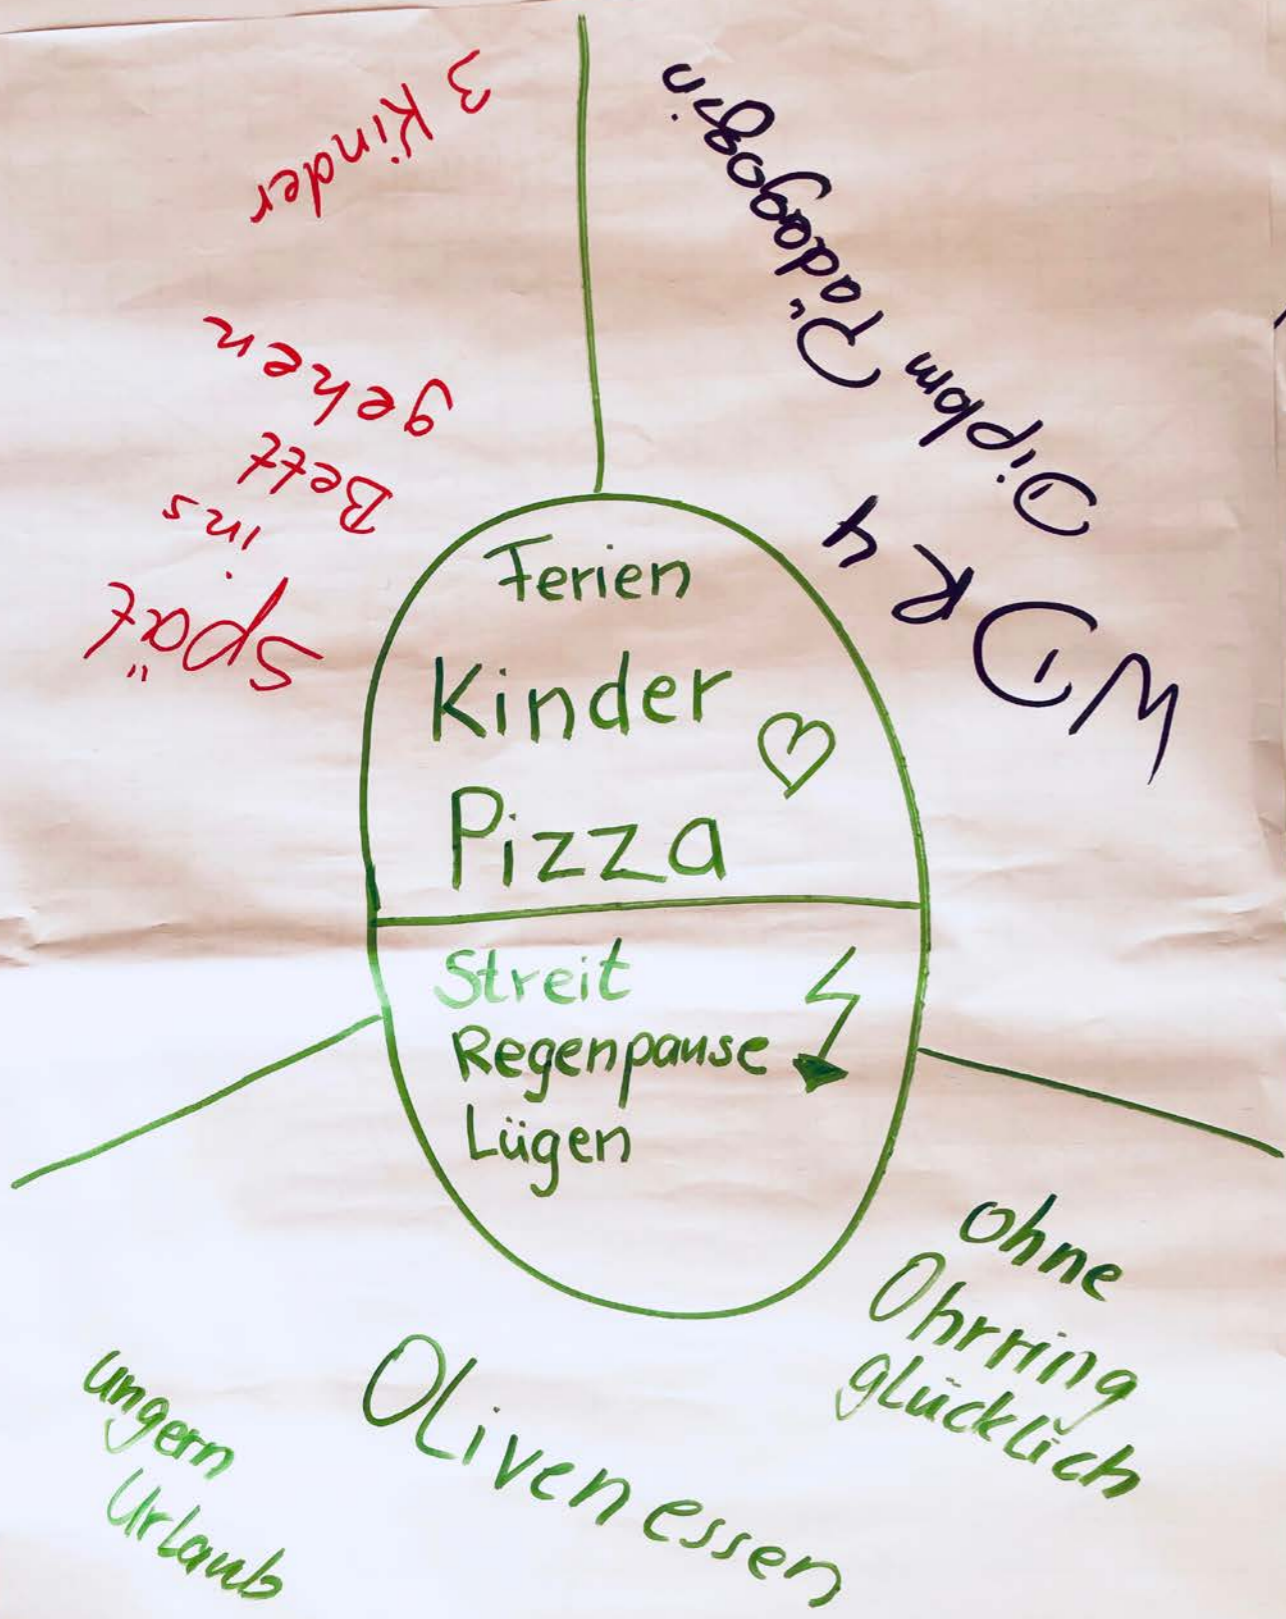 3 Kinder
spät
ins
Bett
gehen
Diplom Pädagogin
WDR 4
Ferien
Kinder
Pizza
Streit
Regenpause
Lügen
ohne
Ohrring
glücklich
Oliven essen
ungern
Urlaub